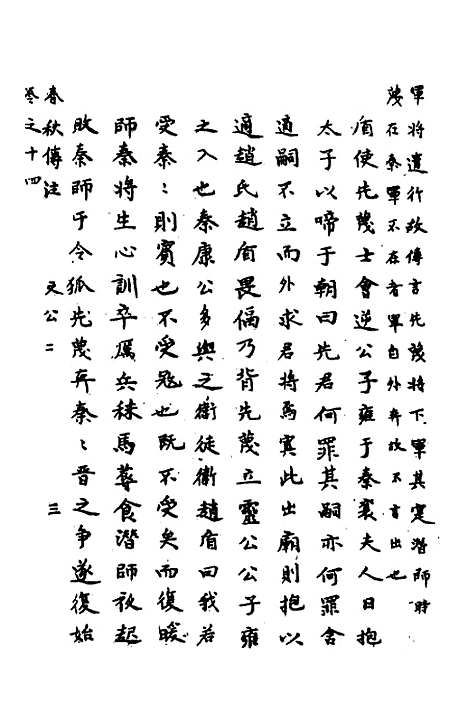 軍將遺行故傳言先蔑將下軍其寔潛師時
蔑在秦軍不在者軍自外奔故不言出也
盾使先蔑士會逆公子雍于秦襄夫人日抱
太子以啼于朝曰先君何罪其嗣亦何罪舍
適嗣不立而外求君將焉寘此出廟則抱以
適趙氏趙盾畏偪乃背先蔑立靈公公子雍
之入也秦康公多與之衛徒衛趙盾曰我若
受秦秦則賓也不受冦也既不受矣而復暖
師秦將生心訓卒厲兵秣馬蓐食潛師夜起
敗秦師于令狐先蔑奔秦秦晋之争遂復始
春秋傳注 文公二 三
卷之十四